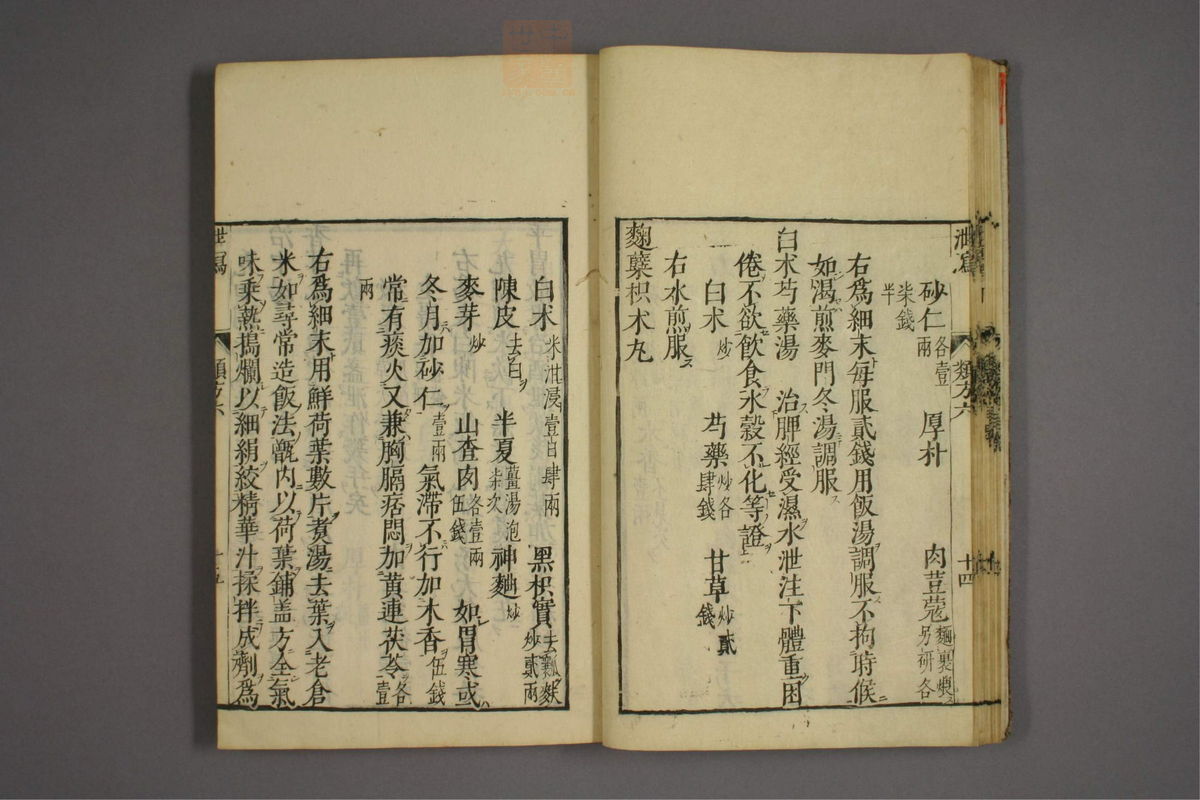 泄瀉 類方六 十四
砂仁各壹兩 厚朴 肉荳蔻麵裹煨另研各
柒錢半
右爲細末每服貳錢用飯湯調服不拘時候
如渴煎麥門冬湯調服
白朮芍藥湯 治脾經受濕水泄注下體重困
倦不欲飲食水穀不化等證
白朮炒 芍藥炒各肆錢 甘草炒貳錢
右水煎服
麴櫱枳朮丸
白朮米泔浸壹日肆兩 黑枳實去瓤麩炒貳兩
陳皮去白 半夏薑湯泡柒次 神麴炒
麥芽炒 山查肉各壹兩伍錢 如胃寒或
冬月加砂仁壹兩 氣滯不行加木香伍錢
常有痰火又兼胸膈痞悶加黃連茯苓各壹
兩
右爲細末用鮮荷葉數片煑湯去葉入老倉
米如尋常造飯法甑內以荷葉鋪盖方全氣
味乘熱搗爛以細絹絞精華汁揉拌成劑爲